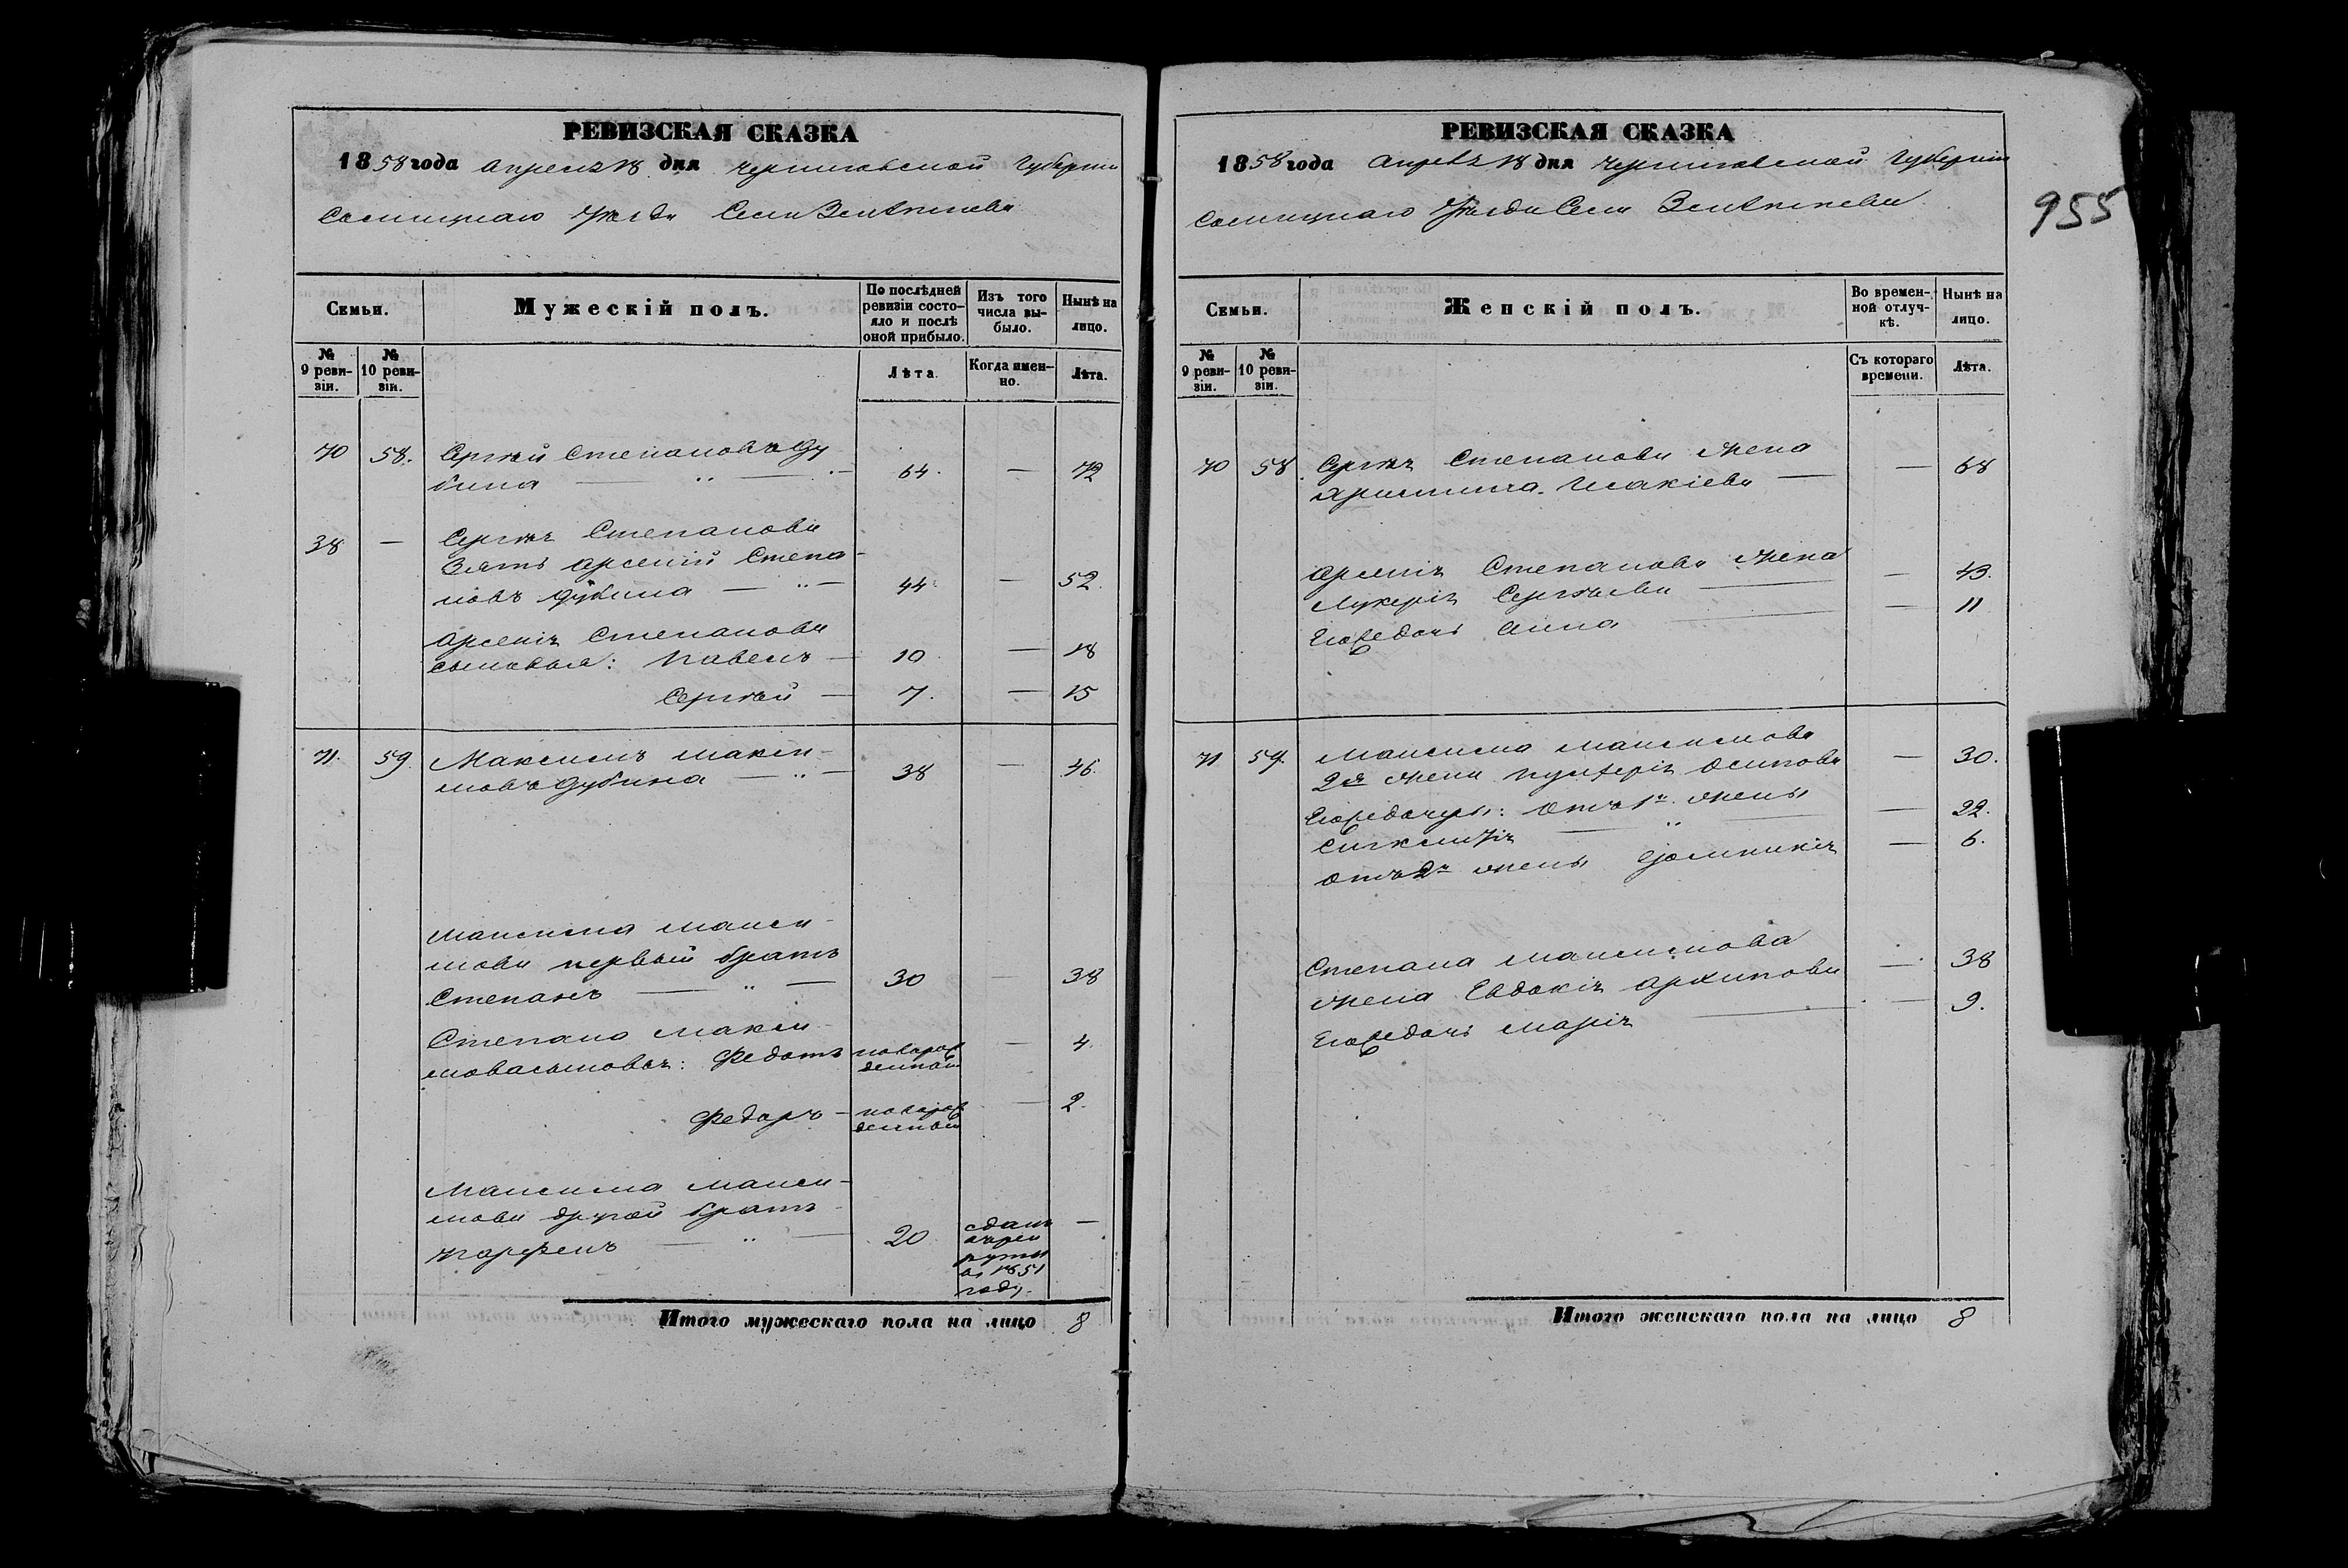 РЕВИЗСКАЯ СКАЗКА
1858 года Апреля 18 дня Черниговской Губернии
Сосницкаго Уѣзда Села
Семьи.
Мужескій полъ.
По послѣдней ревизіи состояло и послѣ оной прибыло.
Изъ того числа выбыло.
Нынѣ на лицо.
№ 9 ревизіи.
№ 10 ревизіи.
Лѣта.
Когда именно.
Лѣта.
70 58. Сергѣй Степановъ Ду
бина — „ — 64. — 72
38 — Сергѣя Степанова
Зять Арсеній Степа-
новъ Дубина — „ — 44. — 52.
Арсенія Степанова
сыновья: Павелъ — 10 — 18
Сергѣй — 7. — 15
71. 59. Максимъ Макси-
мовъ Дубина — „ — 38 — 46.
Максима Макси-
мова первый братъ
Степанъ — „ — 30 — 38
Степана Макси-
мова сыновья: Федотъ новорож
денный — 4.
Федоръ — новорож
денный — 2.
Максима Макси-
мова другой братъ
Парфенъ — „ — 20 сданъ
въ рек
руты
въ 1851
году. —
Итого мужескаго пола на лицо 8
РЕВИЗСКАЯ СКАЗКА
1858 года Апрѣля 18 дня Черниговской Губерніи
Сосницкаго Уѣзда Села
955
Семьи.
Женскій полъ.
Во временной отлучкѣ.
Нынѣ на лицо.
№ 9 ревизіи.
№ 10 ревизіи.
Съ котораго времени.
Лѣта.
70 58. Сергѣя Степанова жена
Христина Исакіева — — 68
Арсенія Степанова жена
Лукерія Сергѣева — — 43.
Его ж дочь Анна — — 11
71 59. Максима Максимова
2я жена Осипова — 30.
Его ж дочери: отъ 1й жены
Синклитія — „ — — 22.
отъ 2й жены Домникія — 6.
Степана Максимова
жена Евдокія Архипова — 38
Его ж дочь Марія — — 9.
Итого женскаго пола на лицо 8